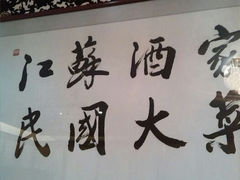 江蘇酒家
民國大菜